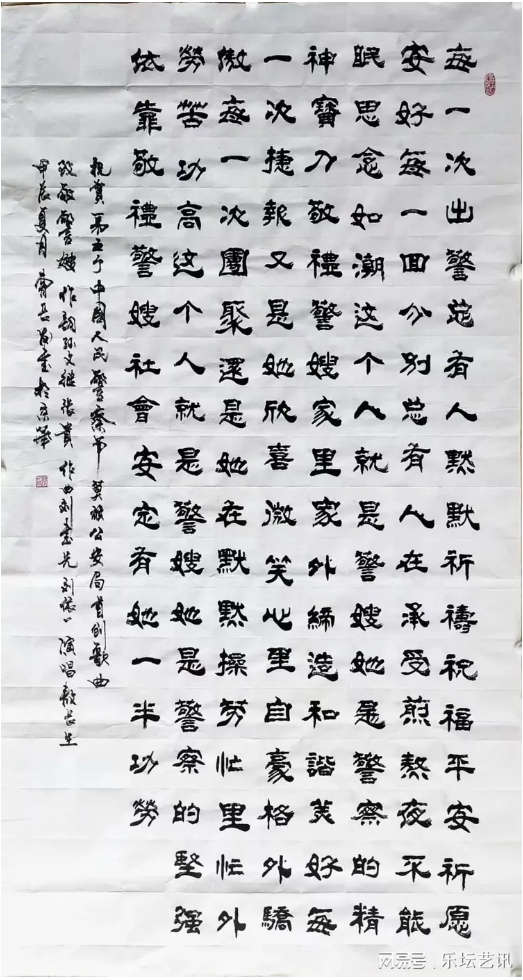 每一次出警总有人默默祈禱祝福平安祈愿
安好每一回分别总有人在承受煎熬夜不能
眠思念如潮这个人就是警嫂她是警察的精
神寶入敬禮警嫂家里家外締造和諧美好每
一次捷報又是她欣喜微笑心里自豪格外驕
傲每一次團聚還是她在默默操劳忙里忙外
勞苦功高这个人就是警嫂她是警察的堅强
依靠敬禮警嫂社會安定有她一半功勞
祝賀第五个中國人民警察节 公安局首創歌曲
致敬警嫂 作詞孙文 张貴 作曲刘 刘 演唱 
甲辰夏月 於京華
网易号 | 乐坛艺讯